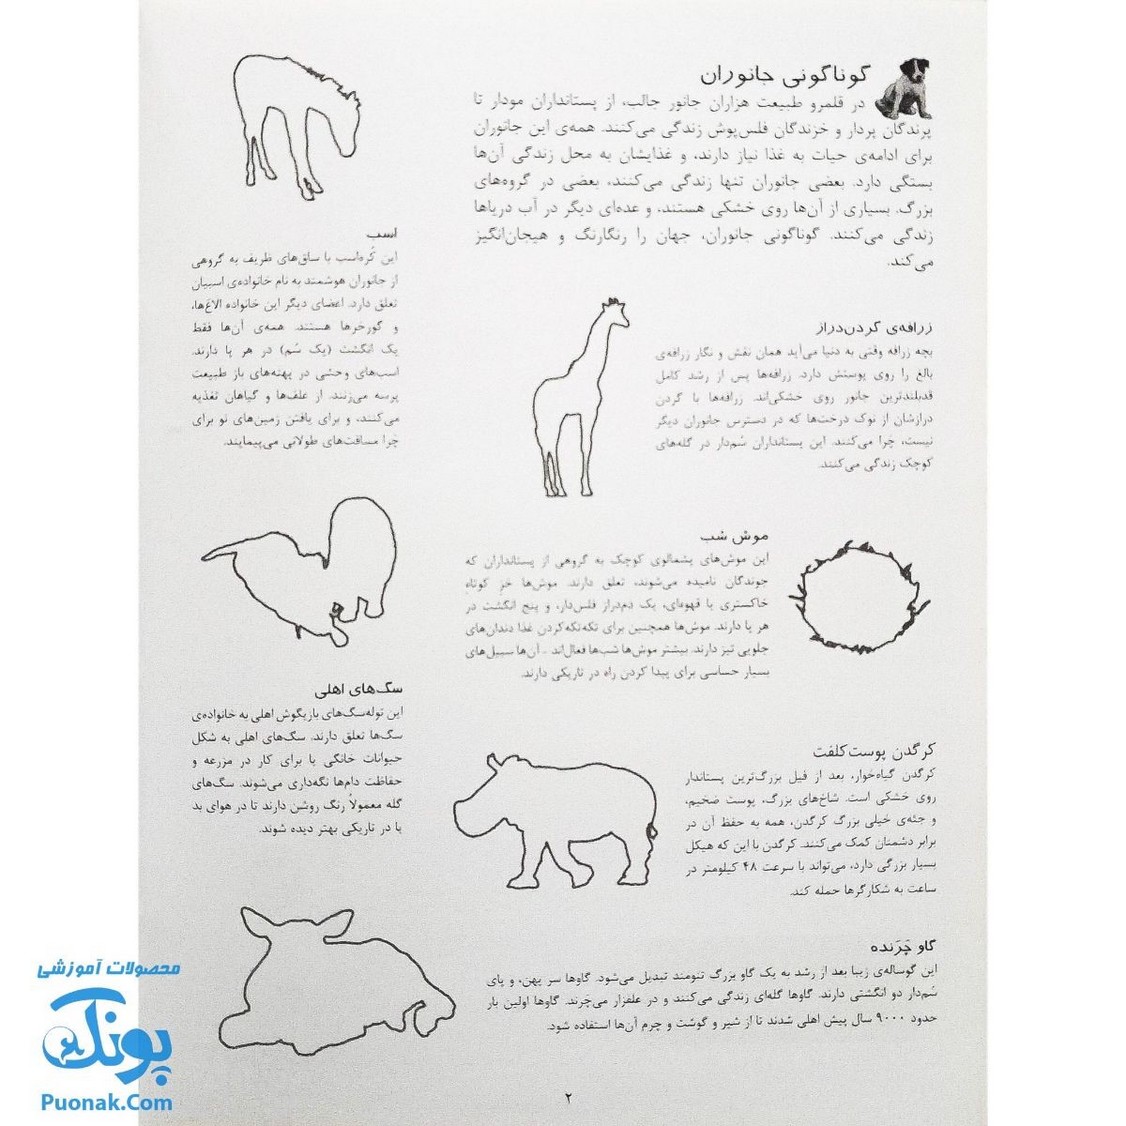 گوناگونی جانوران
در قلمرو طبیعت هزاران جانور جالب، از پستانداران مودار تا
پرندگان پردار و خزندگان فلس‌پوش زندگی می‌کنند. همه‌ی این جانوران
برای ادامه‌ی حیات به غذا نیاز دارند، و غذایشان به محل زندگی آن‌ها
بستگی دارد. بعضی جانوران تنها زندگی می‌کنند، بعضی در گروه‌های
بزرگ. بسیاری از آن‌ها روی خشکی هستند، و عده‌ای دیگر در آب دریاها
زندگی می‌کنند. گوناگونی جانوران، جهان را رنگارنگ و هیجان‌انگیز
می‌کند.
اسب
این کُره‌اسب با ساق‌های ظریف به گروهی
از جانوران هوشمند به نام خانواده‌ی اسبیان
تعلق دارد. اعضای دیگر این خانواده الاغ‌ها،
و گورخرها هستند. همه‌ی آن‌ها فقط
یک انگشت (یک سُم) در هر پا دارند.
اسب‌های وحشی در پهنه‌های باز طبیعت
پرسه می‌زنند. از علف‌ها و گیاهان تغذیه
می‌کنند، و برای یافتن زمین‌های نو برای
چَرا مسافت‌های طولانی می‌پیمایند.
زرافه‌ی گردن‌دراز
بچه زرافه وقتی به دنیا می‌آید همان نقش و نگار زرافه‌ی
بالغ را روی پوستش دارد. زرافه‌ها پس از رشد کامل
قدبلندترین جانور روی خشکی‌اند. زرافه‌ها با گردن
درازشان از نوک درخت‌ها که در دسترس جانوران دیگر
نیست، چَرا می‌کنند. این پستانداران سُم‌دار در گله‌های
کوچک زندگی می‌کنند.
موش شب
این موش‌های پشمالوی کوچک به گروهی از پستانداران که
جوندگان نامیده می‌شوند، تعلق دارند. موش‌ها خز کوتاهِ
خاکستری یا قهوه‌ای، یک دم‌دراز فلس‌دار، و پنج انگشت در
هر پا دارند. موش‌ها همچنین برای تکه‌تکه‌کردن غذا دندان‌های
جلویی تیز دارند. بیشتر موش‌ها شب‌ها فعال‌اند - آن‌ها سبیل‌های
بسیار حساسی برای پیدا کردن راه در تاریکی دارند.
سگ‌های اهلی
این توله‌سگ‌های بازیگوش اهلی به خانواده‌ی
سگ‌ها تعلق دارند. سگ‌های اهلی به شکل
حیوانات خانگی یا برای کار در مزرعه و
حفاظت دام‌ها نگه‌داری می‌شوند. سگ‌های
گله معمولاً رنگ روشن دارند تا در هوای بد
یا در تاریکی بهتر دیده شوند.
کرگدن پوست‌کلفت
کرگدن گیاه‌خوار، بعد از فیل بزرگ‌ترین پستاندار
روی خشکی است. شاخ‌های بزرگ، پوست ضخیم،
و جثه‌ی خیلی بزرگ کرگدن، همه به حفظ آن در
برابر دشمنان کمک می‌کنند. کرگدن با این که هیکل
بسیار بزرگی دارد، می‌تواند با سرعت ۴۸ کیلومتر در
ساعت به شکارگرها حمله کند.
گاو چَرَنده
این گوساله‌ی زیبا بعد از رشد به یک گاو بزرگ تنومند تبدیل می‌شود. گاوها سر پهن، و پای
سُم‌دار دو انگشتی دارند. گاوها گله‌ای زندگی می‌کنند و در علفزار می‌چرند. گاوها اولین بار
حدود ۹۰۰۰ سال پیش اهلی شدند تا از شیر و گوشت و چرم آن‌ها استفاده شود.
۲
محصولات آموزشی
پونک
Puonak.Com